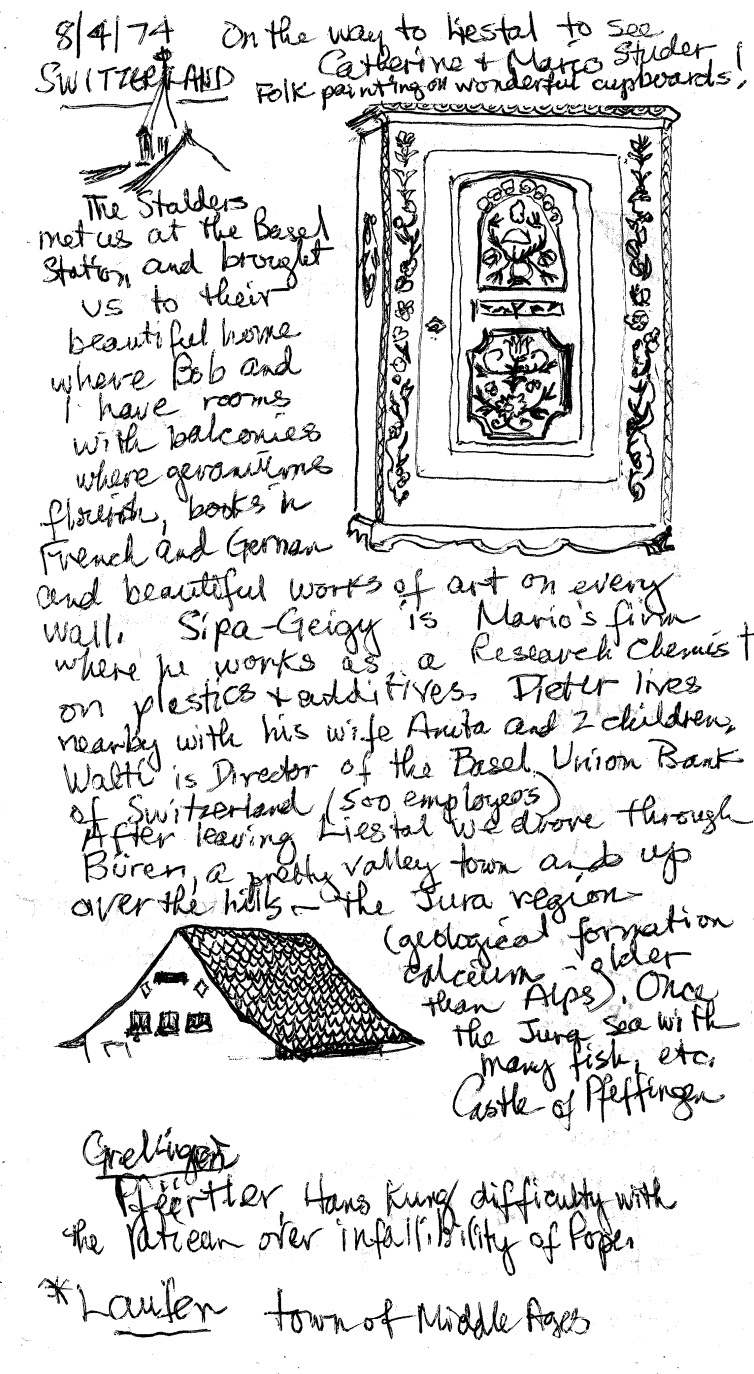 8/4/74 On the way to Liestal to see
SWITZERLAND Catherine + Mario Studer!
Folk painting on wonderful cupboards!
The Stalders
met us at the Basel
Station and brought
us to their
beautiful home
where Bob and
I have rooms
with balconies
where geraniums
flourish, books in
French and German
and beautiful works of art on every
wall. Sipa-Geigy is Mario's firm
where he works as a Research Chemist
on plastics + additives. Dieter lives
nearby with his wife Anita and 2 children,
Walti is Director of the Basel Union Bank
of Switzerland (500 employees)
After leaving Liestal we drove through
Büren, a pretty valley town and up
over the hills — the Jura region
(geological formation
calcium - older
than Alps). Once
the Jura sea with
many fish, etc.
Castle of Pfeffingen
Grellingen
Hans Kung difficulty with
the Vatican over infallibility of Pope.
*Laufen town of Middle Ages